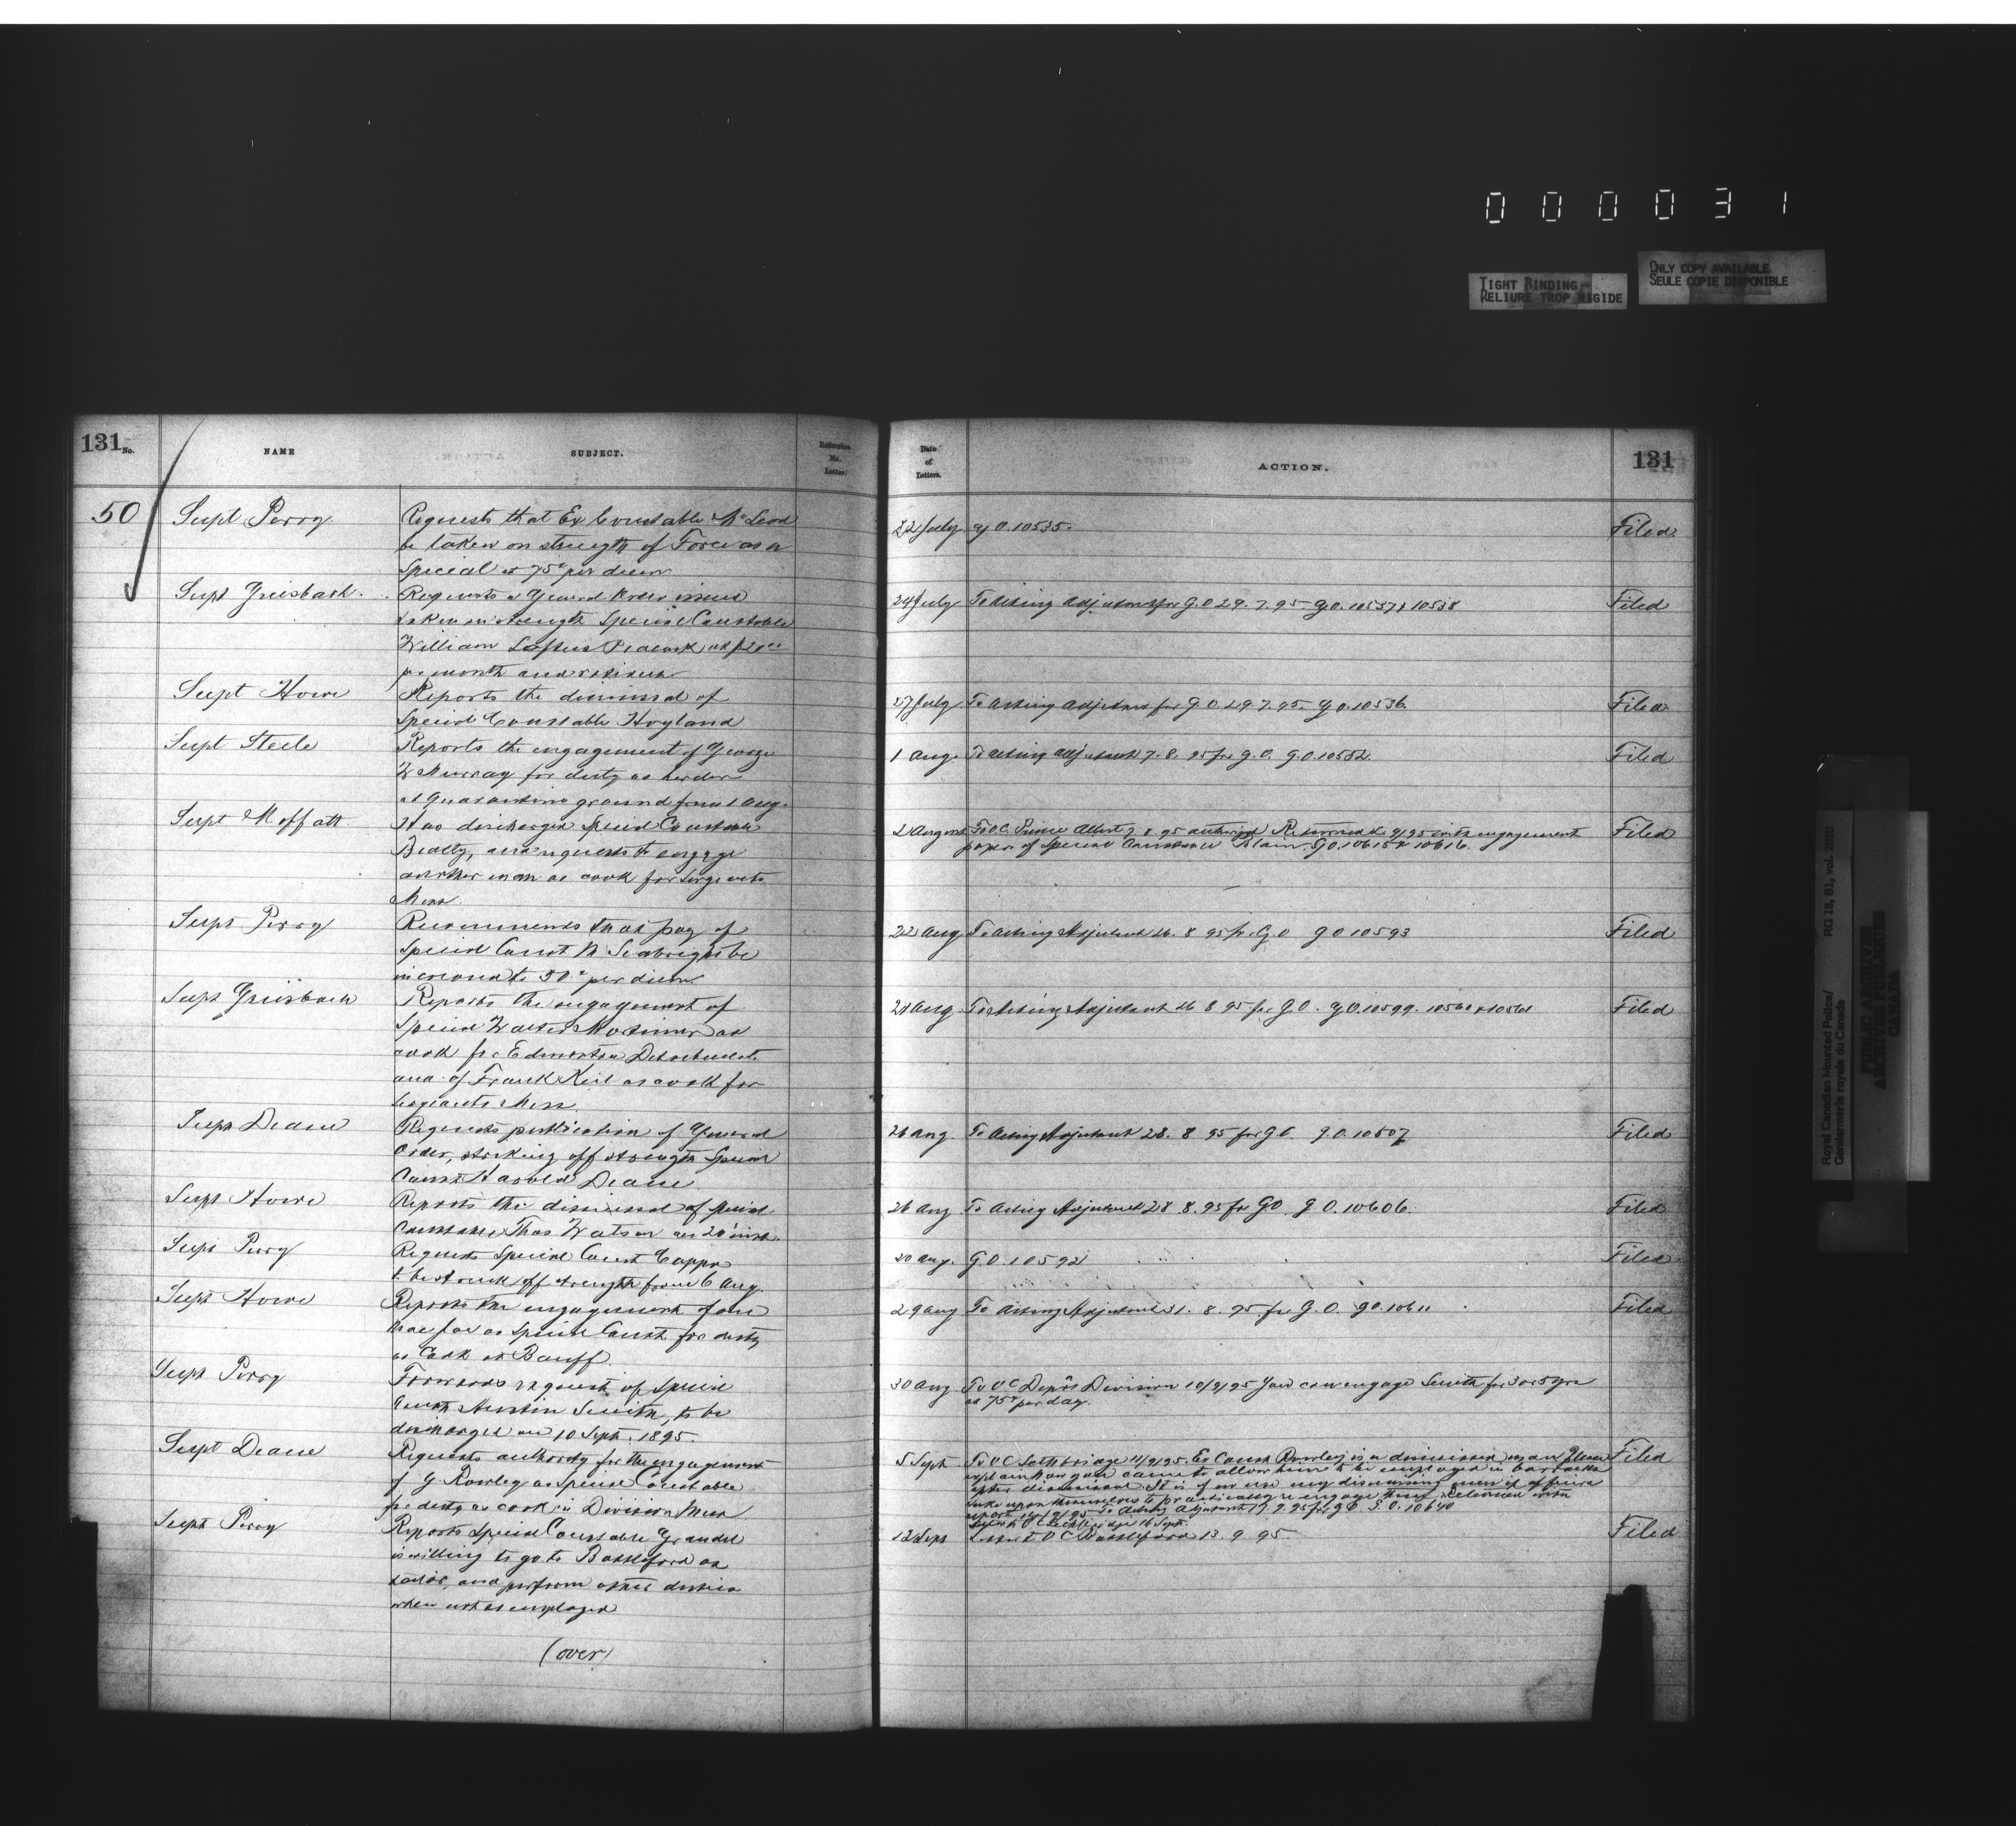 0 0 0 0 3 1
TIGHT BINDING
RELIURE TROP RIGIDE
ONLY COPY AVAILABLE
SEULE COPIE DISPONIBLE
131 No.
NAME
SUBJECT.
Reference No. Letter.
50
Supt Perry
Requests that Ex Constable McLeod
be taken on strength of Force as a
Special at 75c per diem
Supt Griesbach
Requests a General Order issued
taken on strength Special Constable
William Loftus Peacock at $20.00
per month and rations
Supt Howe
Reports the dismissal of
Special Constable Hoyland
Supt Steele
Reports the engagement of George
W Murray for duty as herder
at Quarantine ground from 1 Aug.
Supt Moffatt
Has discharged Special Constable
Beatty, and requests to engage
another man as cook for Sergeants
Mess.
Supt Perry
Recommends that pay of
Special Const M Seabright be
increased to 50c per diem
Supt Griesbach
Reports the engagement of
Special Walter Mortimer as
cook for Edmonton Detachment
and of Frank Keil as cook for
Sergeants Mess.
Supt Deane
Requests publication of General
Order, striking off strength Special
Const Harold Deane
Supt Howe
Reports the dismissal of Special
Constable Thos Watson on 20 inst.
Supt Perry
Requests Special Const
to be struck off strength from 6 Aug.
Supt Howe
Reports the engagement of one
as Special Const. for duty
as Cook at Banff.
Supt Perry
Forwards request of Special
Const Austin Smith, to be
discharged on 10 Sept. 1895.
Supt Deane
Requests authority for the engagement
of G Rowley as Special Constable
for duty as cook in Division Mess
Supt Perry
Reports Special Constable
is willing to go to Battleford as
tailor, and perform other duties
when not so employed
(over)
Date of Letters.
ACTION.
131
22 July G.O. 10535. Filed
24 July To Acting Adjutant for G.O 29.7.95 G.O. 10537 & 10538 Filed
27 July To Acting Adjutant for G.O 29.7.95. G.O. 10536. Filed
1 Aug. To Acting Adjutant 7.8.95 for G.O. G.O. 10552. Filed
2 August To O.C. Prince Albert 7 8 95 authorized Returned 9/95 with engagement Filed
paper of Special Constable Blain G.O. 10615 & 10616.
22 Aug To Acting Adjutant 26. 8 95 for G.O G O 10593 Filed
21 Aug To Acting Adjutant 26 8 95 for G.O. G.O. 10599. Filed
26 Aug. To Acting Adjutant 28. 8 95 for G.O. G.O. Filed
26 Aug To Acting Adjutant 28 8.95 for G.O. G.O. 10606. Filed
20 Aug. G.O. 10592 Filed
29 Aug To Acting Adjutant 31. 8. 95 for G.O. G.O. 10611 Filed
30 Aug To O C Depôt Division 10/9/95 You can engage Smith for 3 or 5 yrs
at 75c per day.
5 Sept To O C Lethbridge 11/9/95. Ex Const Rowley is a dismissed man Please Filed
explain how you came to allow him to be employed in barracks
after dismissal. It is of no use my dismissing men if officers
take upon themselves to practically re engage them. Returned with
report /9/95 To Acting Adjutant 17.9.95 for G.O. G.O. 10640
O C Lethbridge 16 Sept.
12 Sept O C Battleford 13. 9 95. Filed
Royal Canadian Mounted Police/
Gendarmerie royale du Canada
RG 18, B1, vol. 2020
PUBLIC ARCHIVES
ARCHIVES PUBLIQUES
CANADA